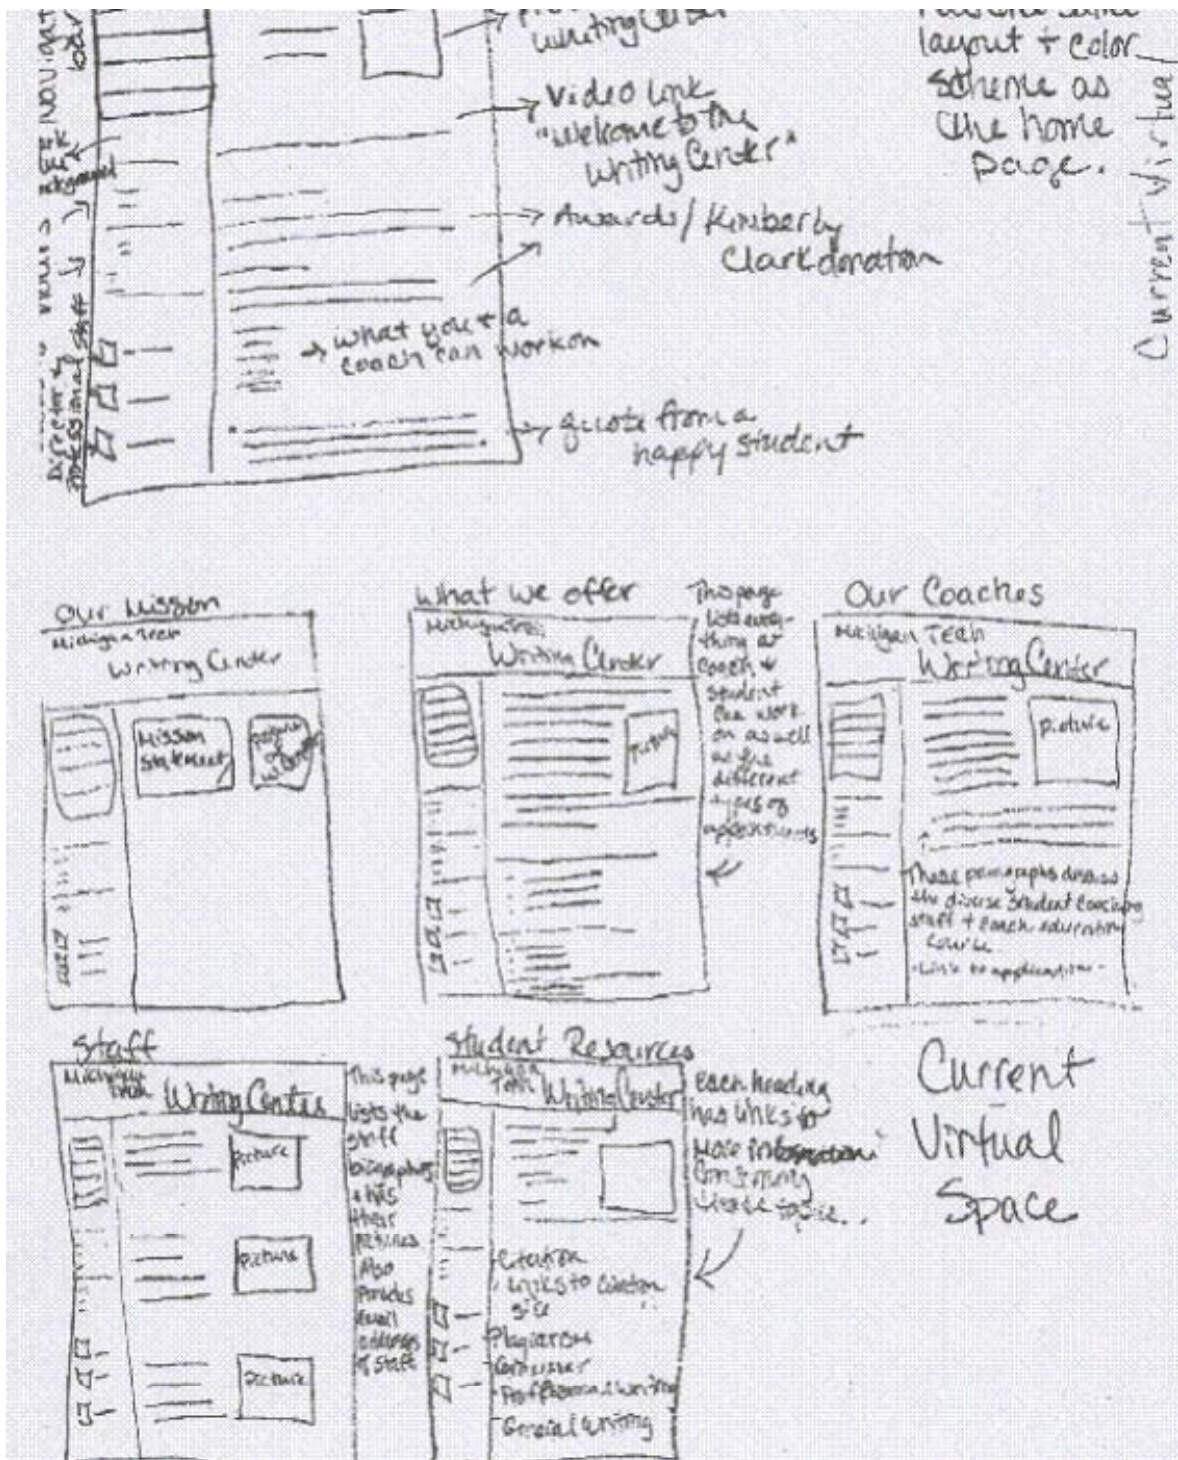 Writing Center
layout + color
scheme as
the home
page.
Current Virtual
Video link
"Welcome to the
Writing Center"
Awards/Kimberly
Clark donation
what you + a
coach can work on
quote from a
happy student
Director +
professional staff
Our Mission
Michigan Tech
Writing Center
Mission
Statement
What we offer
Michigan Tech
Writing Center
Picture
This page
lists every-
thing a
coach +
student
can work
on as well
as the
different
types of
appointments
Our Coaches
Michigan Tech
Writing Center
Picture
These paragraphs discuss
the diverse student coaching
staff + coach education
course
-Link to application-
Staff
Michigan
Tech
Writing Center
Picture
Picture
Picture
This page
lists the
staff
biographies
+ has
their
pictures
Also
Provides
Email
addresses
of staff
Student Resources
Michigan
Tech
Writing Center
Citation
Links to citation
site
Plagiarism
Grammar
Professional Writing
General Writing
Each heading
has links to
More information
Concerning
Current
Virtual
Space